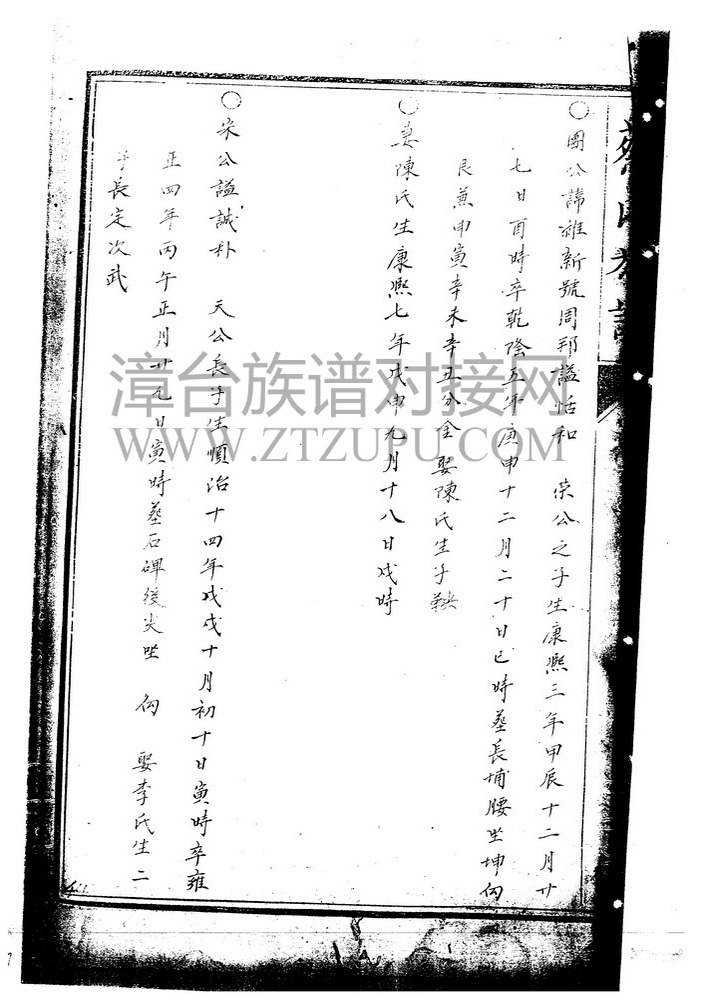 ○團公諱雅新號周邦諡恬和 荣公之子生康熙三年甲辰十二月廿
七日酉時卒乾隆五年庚申十二月二十日巳時葬長埔腰坐坤向
艮兼申寅辛未辛丑分金 娶陳氏生子
○妻陳氏生康熙七年戊申九月十八日戌時
○宋公諡誠朴 天公長子生順治十四年戊戌十月初十日寅時卒雍
正四年丙午正月廿九日寅時葬石碑後尖坐 向 娶李氏生二
子長定次武
漳台族谱对接网
WWW.ZTZUPU.COM